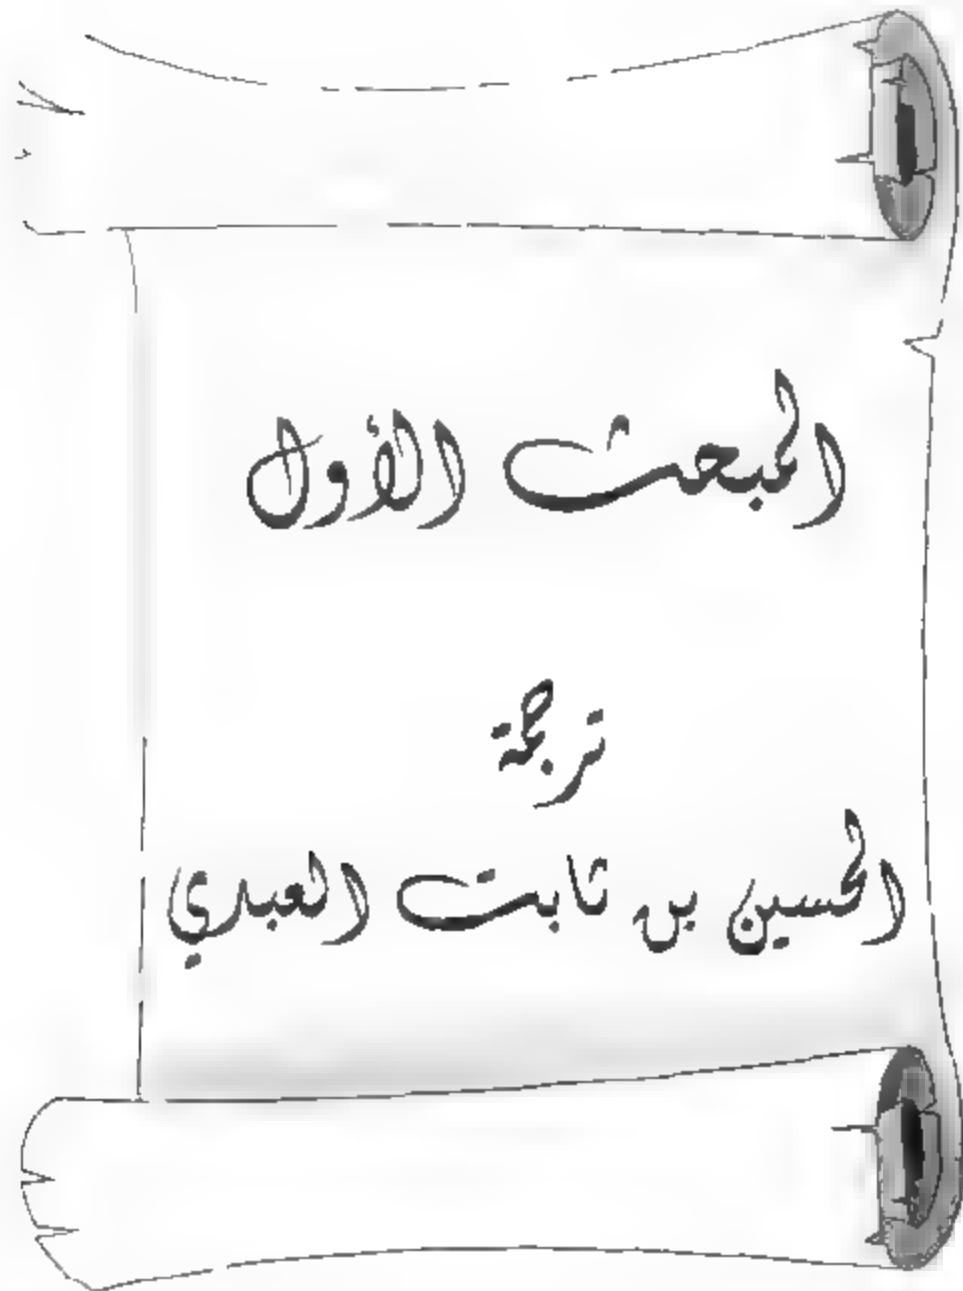 المبحث الأول
ترجمة
الحسين بن ثابت العبدي